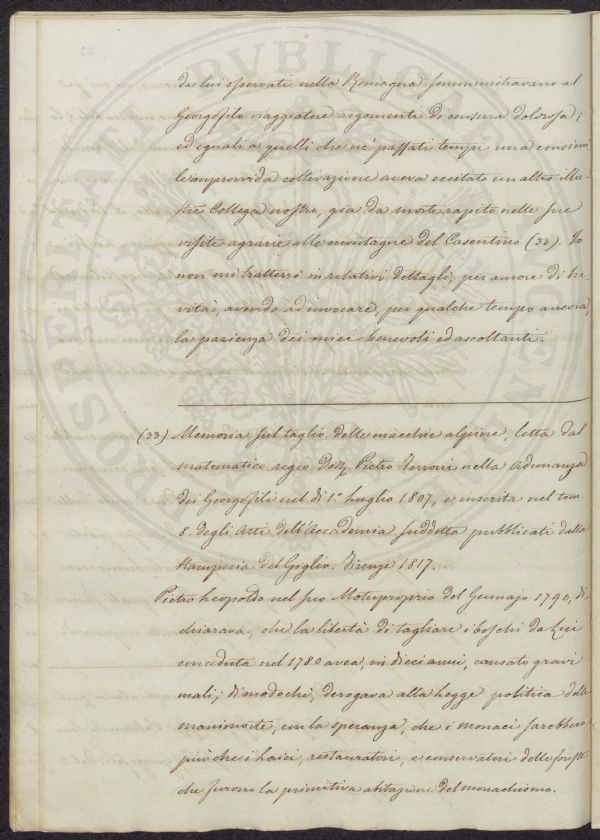 da lui osservati nella Romagna somministravano al
Georgofilo viaggiatore argomenti di censura dolorosa;
ed eguali a quelli che ne' passati tempi una consimi
le improvvida coltivazione aveva eccitato in altro illu-
stre Collega nostro, già da morte rapito nelle sue
visite agrarie alle montagne del Casentino (33). Io
non mi tratterrò in relativi dettagli, per amore di bre
vità, avendo ad invocare, per qualche tempo ancora,
la pazienza dei miei benevoli ed ascoltanti.
(33) Memoria sul taglio delle macchie alpine, letta dal
matematico regio Dott. Pietro Ferroni nella adunanza
dei Georgofili nel dì 1° Luglio 1807, e inserita nel tom.
8. degli Atti dell'Accademia suddetta pubblicati dalla
Stamperia del Giglio. Firenze 1817.
Pietro Leopoldo nel suo Motuproprio del Gennajo 1790, di-
chiarava, che la libertà di tagliare i boschi da Lui
conceduta nel 1780 avea, in dieci anni, causato gravi
mali; dimodochè, derogava alla legge politica delle
manimorte, con la speranza, che i monaci sarebbero
più che i laici, restauratori, e conservatori delle foreste
che furono la primitiva abitazione del monachismo.
PROSPERITATI PUBLICAE